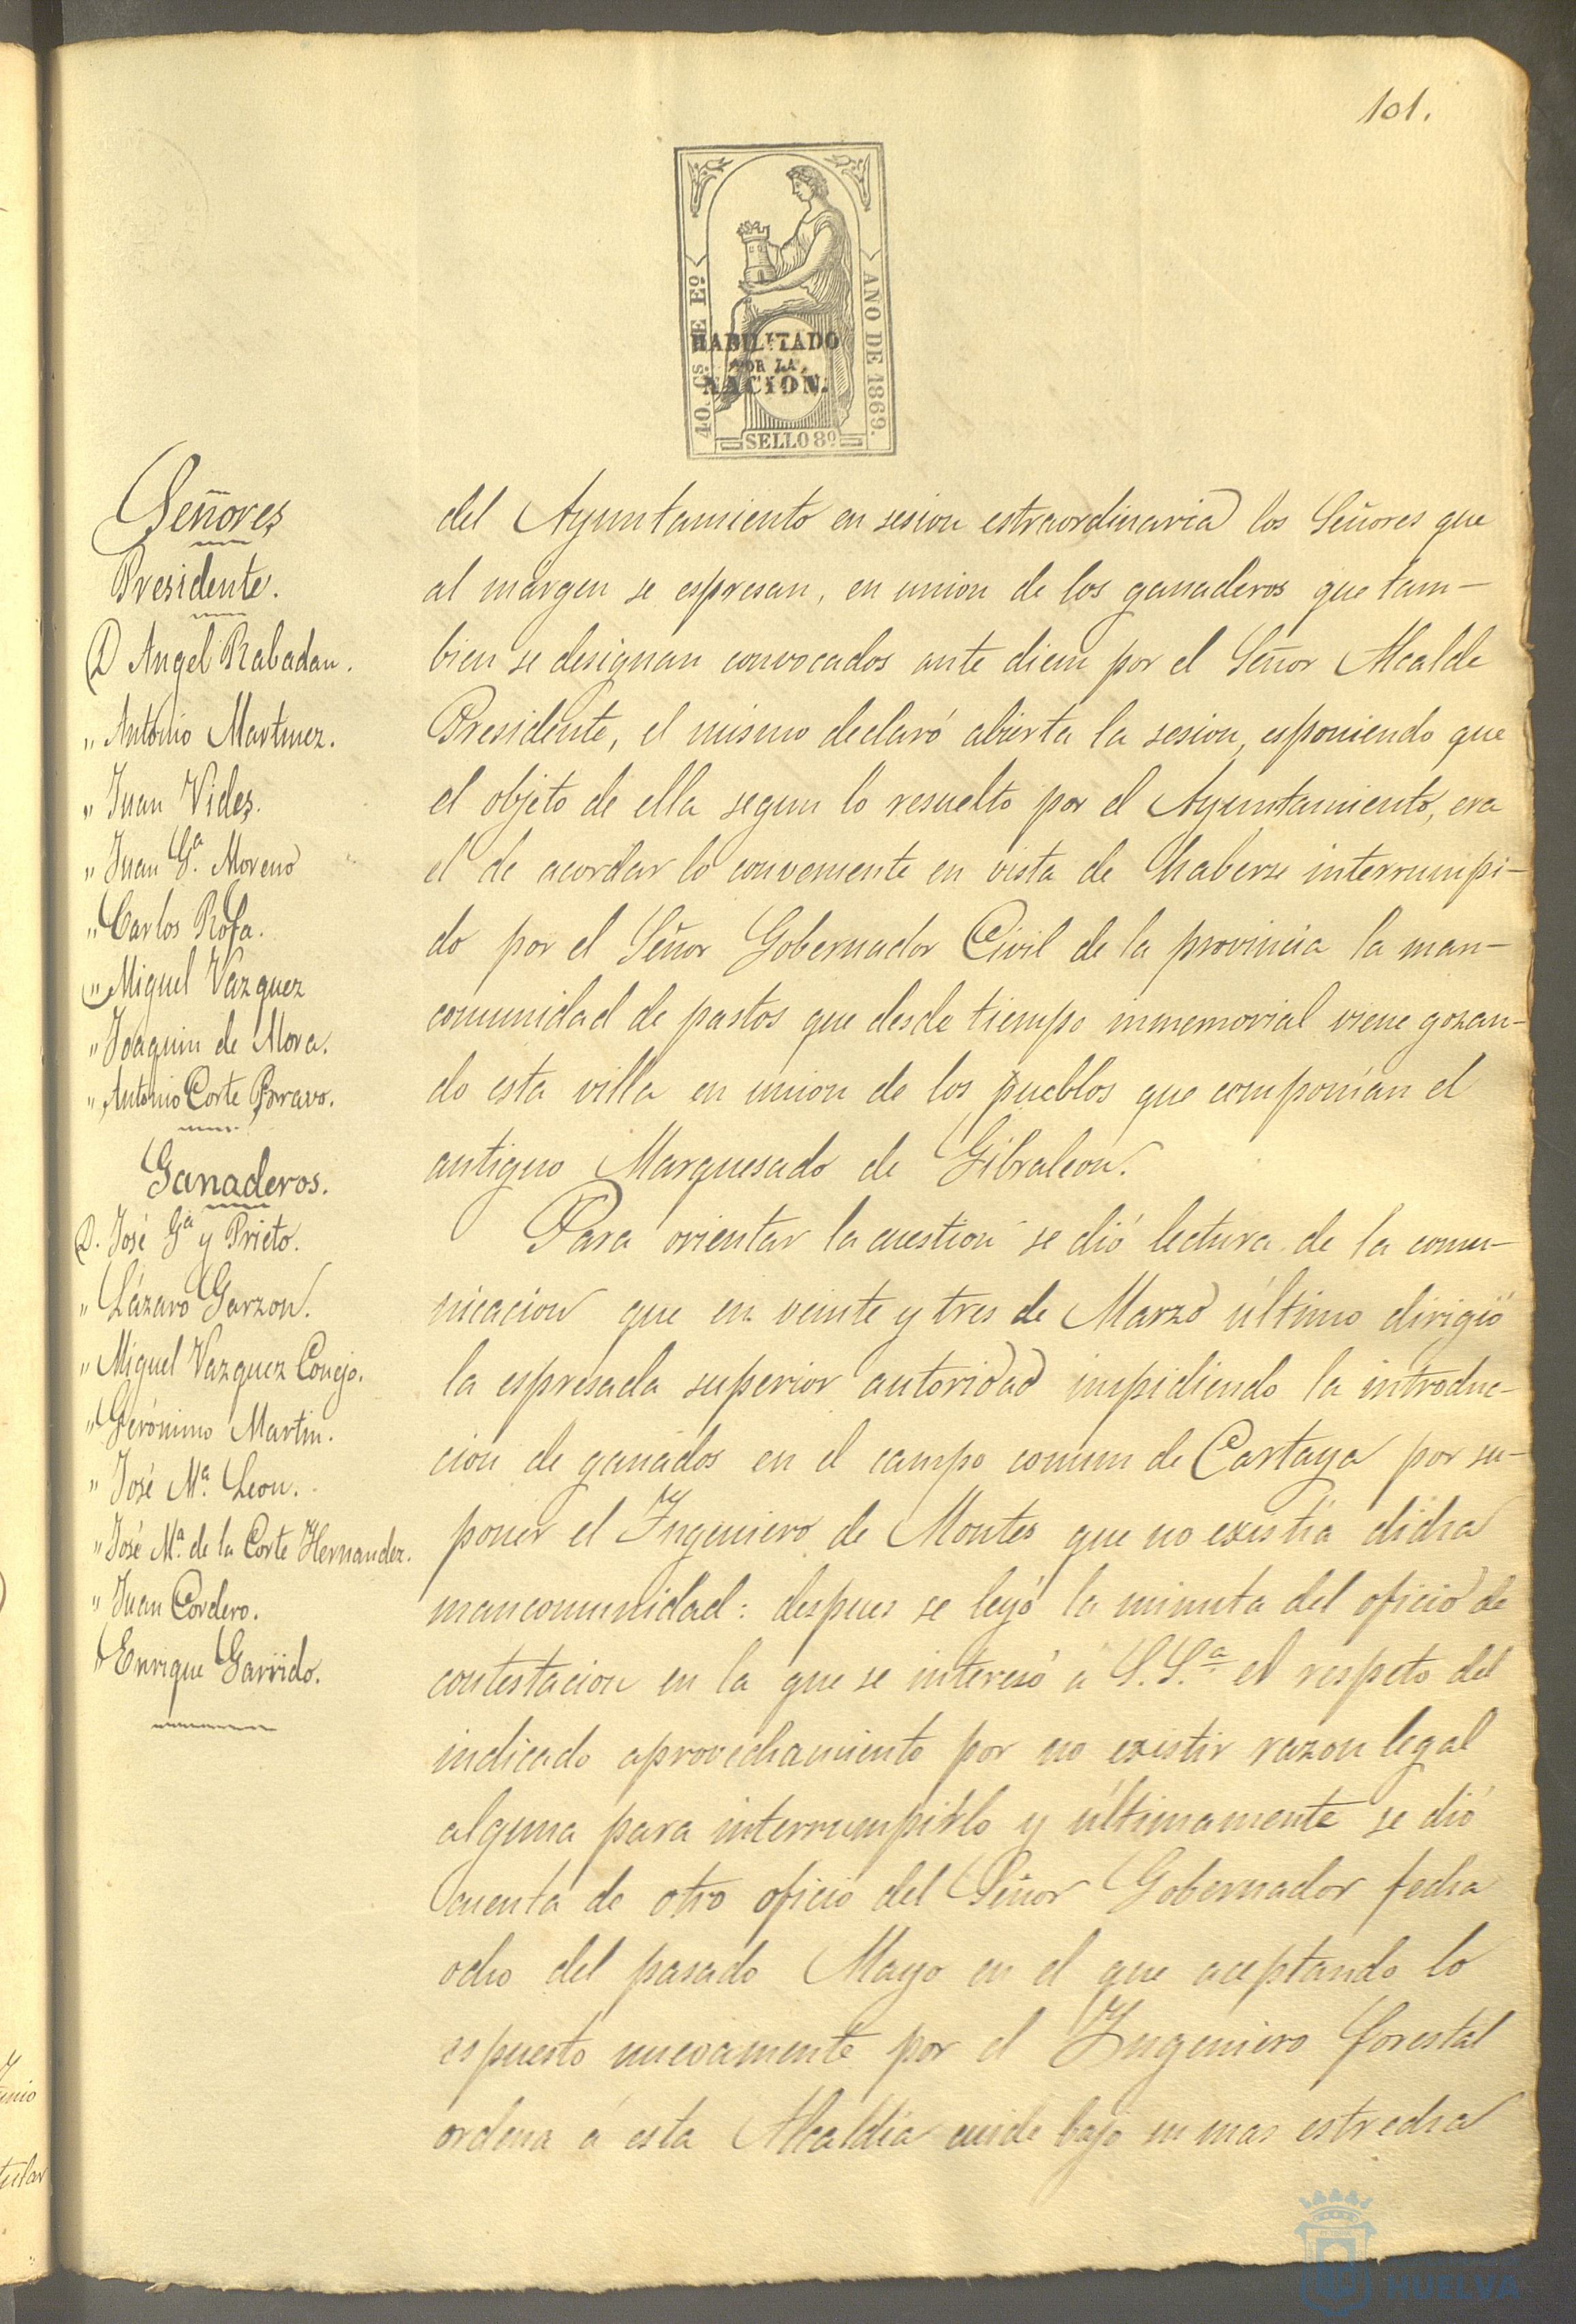 101.
40. Cs. DE Eº
AÑO DE 1869.
HABILITADO
POR LA
NACION.
SELLO 8º
Señores
Presidente.
D Angel Rabadan.
" Antonio Martinez.
" Juan Vides.
" Juan Gª. Moreno
" Carlos Rofa.
" Miguel Vazquez
" Joaquin de Mora.
" Antonio Corte Bravo.
Ganaderos.
D. José Gª y Prieto.
" Lázaro Garzon.
" Miguel Vazquez Conejo.
" Gerónimo Martin.
" José Mª. Leon.
" José Mª. de la Corte Hernandez.
" Juan Cordero.
" Enrique Garrido.
del Ayuntamiento en sesion estraordinaria los Señores que
al margen se espresan, en union de los ganaderos que tam-
bien se designan convocados ante diem por el Señor Alcalde
Presidente, el mismo declaró abierta la sesion, esponiendo que
el objeto de ella segun lo resuelto por el Ayuntamiento, era
el de acordar lo conveniente en vista de haberse interrumpi-
do por el Señor Gobernador Civil de la provincia la man-
comunidad de pastos que desde tiempo inmemorial viene gozan-
do esta villa en union de los pueblos que componian el
antiguo Marquesado de Gibraleon.
Para orientar la cuestion se dió lectura de la comu-
nicacion que en veinte y tres de Marzo último dirigió
la espresada superior autoridad impidiendo la introduc-
cion de ganados en el campo comun de Cartaya por su-
poner el Ingeniero de Montes que no existia dicha
mancomunidad: despues se leyó la minuta del oficio de
contestacion en la que se interesó á S.Sª. el respeto del
indicado aprovechamiento por no existir razon legal
alguna para interrumpirlo y últimamente se dió
cuenta de otro oficio del Señor Gobernador fecha
ocho del pasado Mayo en el que aceptando lo
espuesto nuevamente por el Ingeniero forestal
ordena á esta Alcaldia cuide bajo su mas estrecha
unio
tular
HUELVA